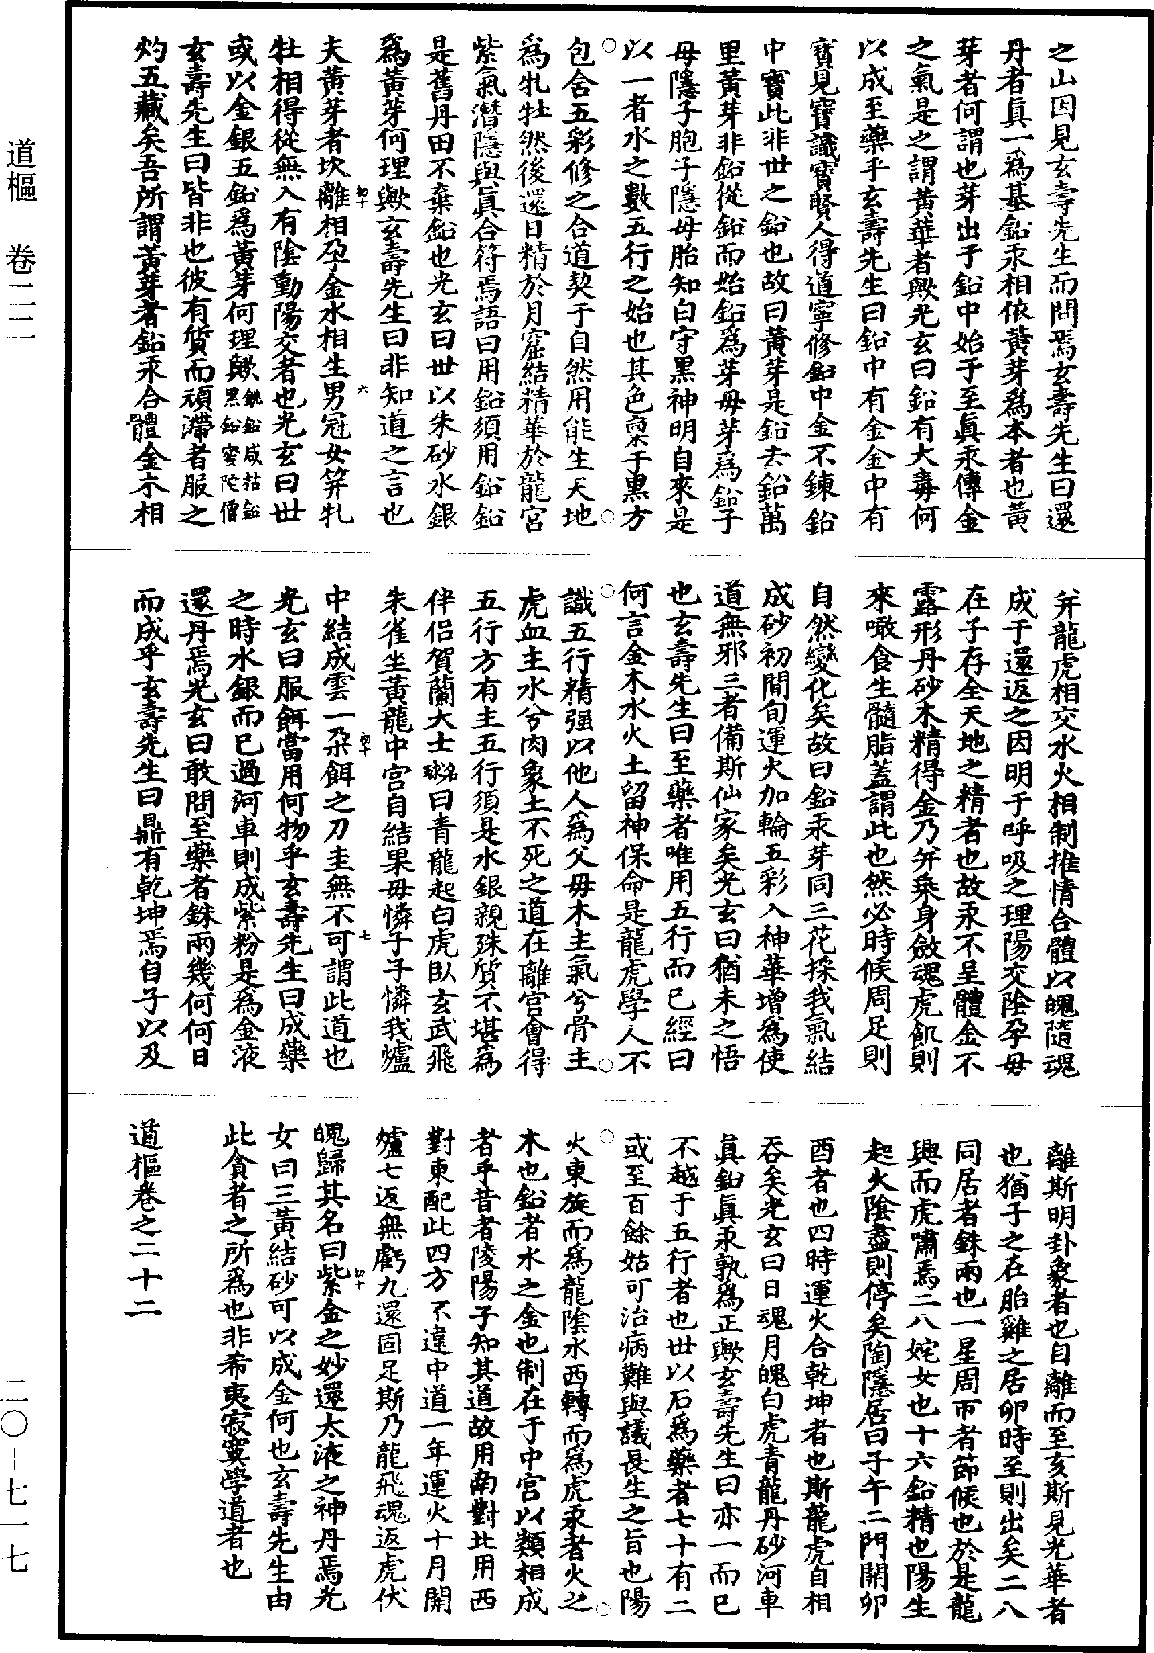 之山因見玄壽先生而問焉玄壽先生曰還
丹者眞一爲基鉛汞相依黃芽爲本者也黃
芽者何謂也芽出于鉛中始于至眞汞傳金
之氣是之謂黃華者歟光玄曰鉛有大毒何
以成至藥乎玄壽先生曰鉛中有金金中有
寶見寶識寶賢人得道寧修鉛中金不鍊鉛
中寶此非世之鉛也故曰黃芽是鉛去鉛萬
里黃芽非鉛從鉛而始鉛爲芽母芽爲鉛子
母隱子胞子隱母胎知白守黑神明自來是
以一者水之數五行之始也其色稟于黑方
包含五彩修之合道契于自然用能生天地
爲牝牡然後還日精於月窟結精華於龍宮
紫氣潛隱與眞合符焉語曰用鉛須用鉛鉛
是舊丹田不棄鉛也光玄曰世以朱砂水銀
爲黃芽何理歟玄壽先生曰非知道之言也
夫黃芽者坎離相孕金水相生男冠女笄牝
牡相得從無入有陰動陽交者也光玄曰世
或以金銀五鉛爲黃芽何理歟銚鉛咸枯鉛黑鉛蜜陀僧
玄壽先生曰皆非也彼有質而頑滯者服之
灼五藏矣吾所謂黃芽者鉛汞合體金木相
并龍虎相交水火相制推情合體以魄隨魂
成于還返之因明于呼吸之理陽交陰孕母
在子存全天地之精者也故汞不呈體金不
露形丹砂木精得金乃并乘身斂魂虎飢則
來噉食生髓脂蓋謂此也然必時候周足則
自然變化矣故曰鉛汞芽同三花探我氣結
成砂初間旬運火加輪五彩入神華增爲使
道無邪三者備斯仙家矣光玄曰猶未之悟
也玄壽先生曰至藥者唯用五行而已經曰
何言金木水火土留神保命是龍虎學人不
識五行精强以他人爲父母木主氣兮骨主
虎血主水兮肉象土不死之道在離宮會得
五行方有主五行須是水銀親殊質不堪爲
伴侶賀蘭大士曰青龍起白虎臥玄武飛
朱雀坐黃龍中宮自結果母憐子子憐我爐
中結成雲一朶餌之刀圭無不可謂此道也
光玄曰服餌當用何物乎玄壽先生曰成藥
之時水銀而已過河車則成紫粉是爲金液
還丹焉光玄曰敢問至藥者銖兩幾何何日
而成乎玄壽先生曰鼎有乾坤焉自子以及
離斯明卦象者也自離而至亥斯見光華者
也猶子之在胎雞之居卵時至則出矣二八
同居者銖兩也一星周帀者節候也於是龍
興而虎嘯焉二八姹女也十六鉛精也陽生
起火陰盡則停矣陶隱居曰子午二門開卯
酉者也四時運火合乾坤者也斯龍虎自相
吞矣光玄曰日魂月魄白虎青龍丹砂河車
眞鉛眞汞孰爲正歟玄壽先生曰亦一而已
不越于五行者也世以石爲藥者七十有二
或至百餘姑可治病難與議長生之旨也陽
火東旋而爲龍陰水西轉而爲虎汞者火之
木也鉛者水之金也制在于中宮以類相成
者乎昔者陵陽子知其道故用南對北用西
對東配此四方不違中道一年運火十月開
爐七返無虧九還固足斯乃龍飛魂返虎伏
魄歸其名曰紫金之妙還太液之神丹焉光
女曰三黃結砂可以成金何也玄壽先生由
此貪者之所爲也非希夷寂寞學道者也
道樞卷之二十二
道樞 卷二二
二〇-七一七